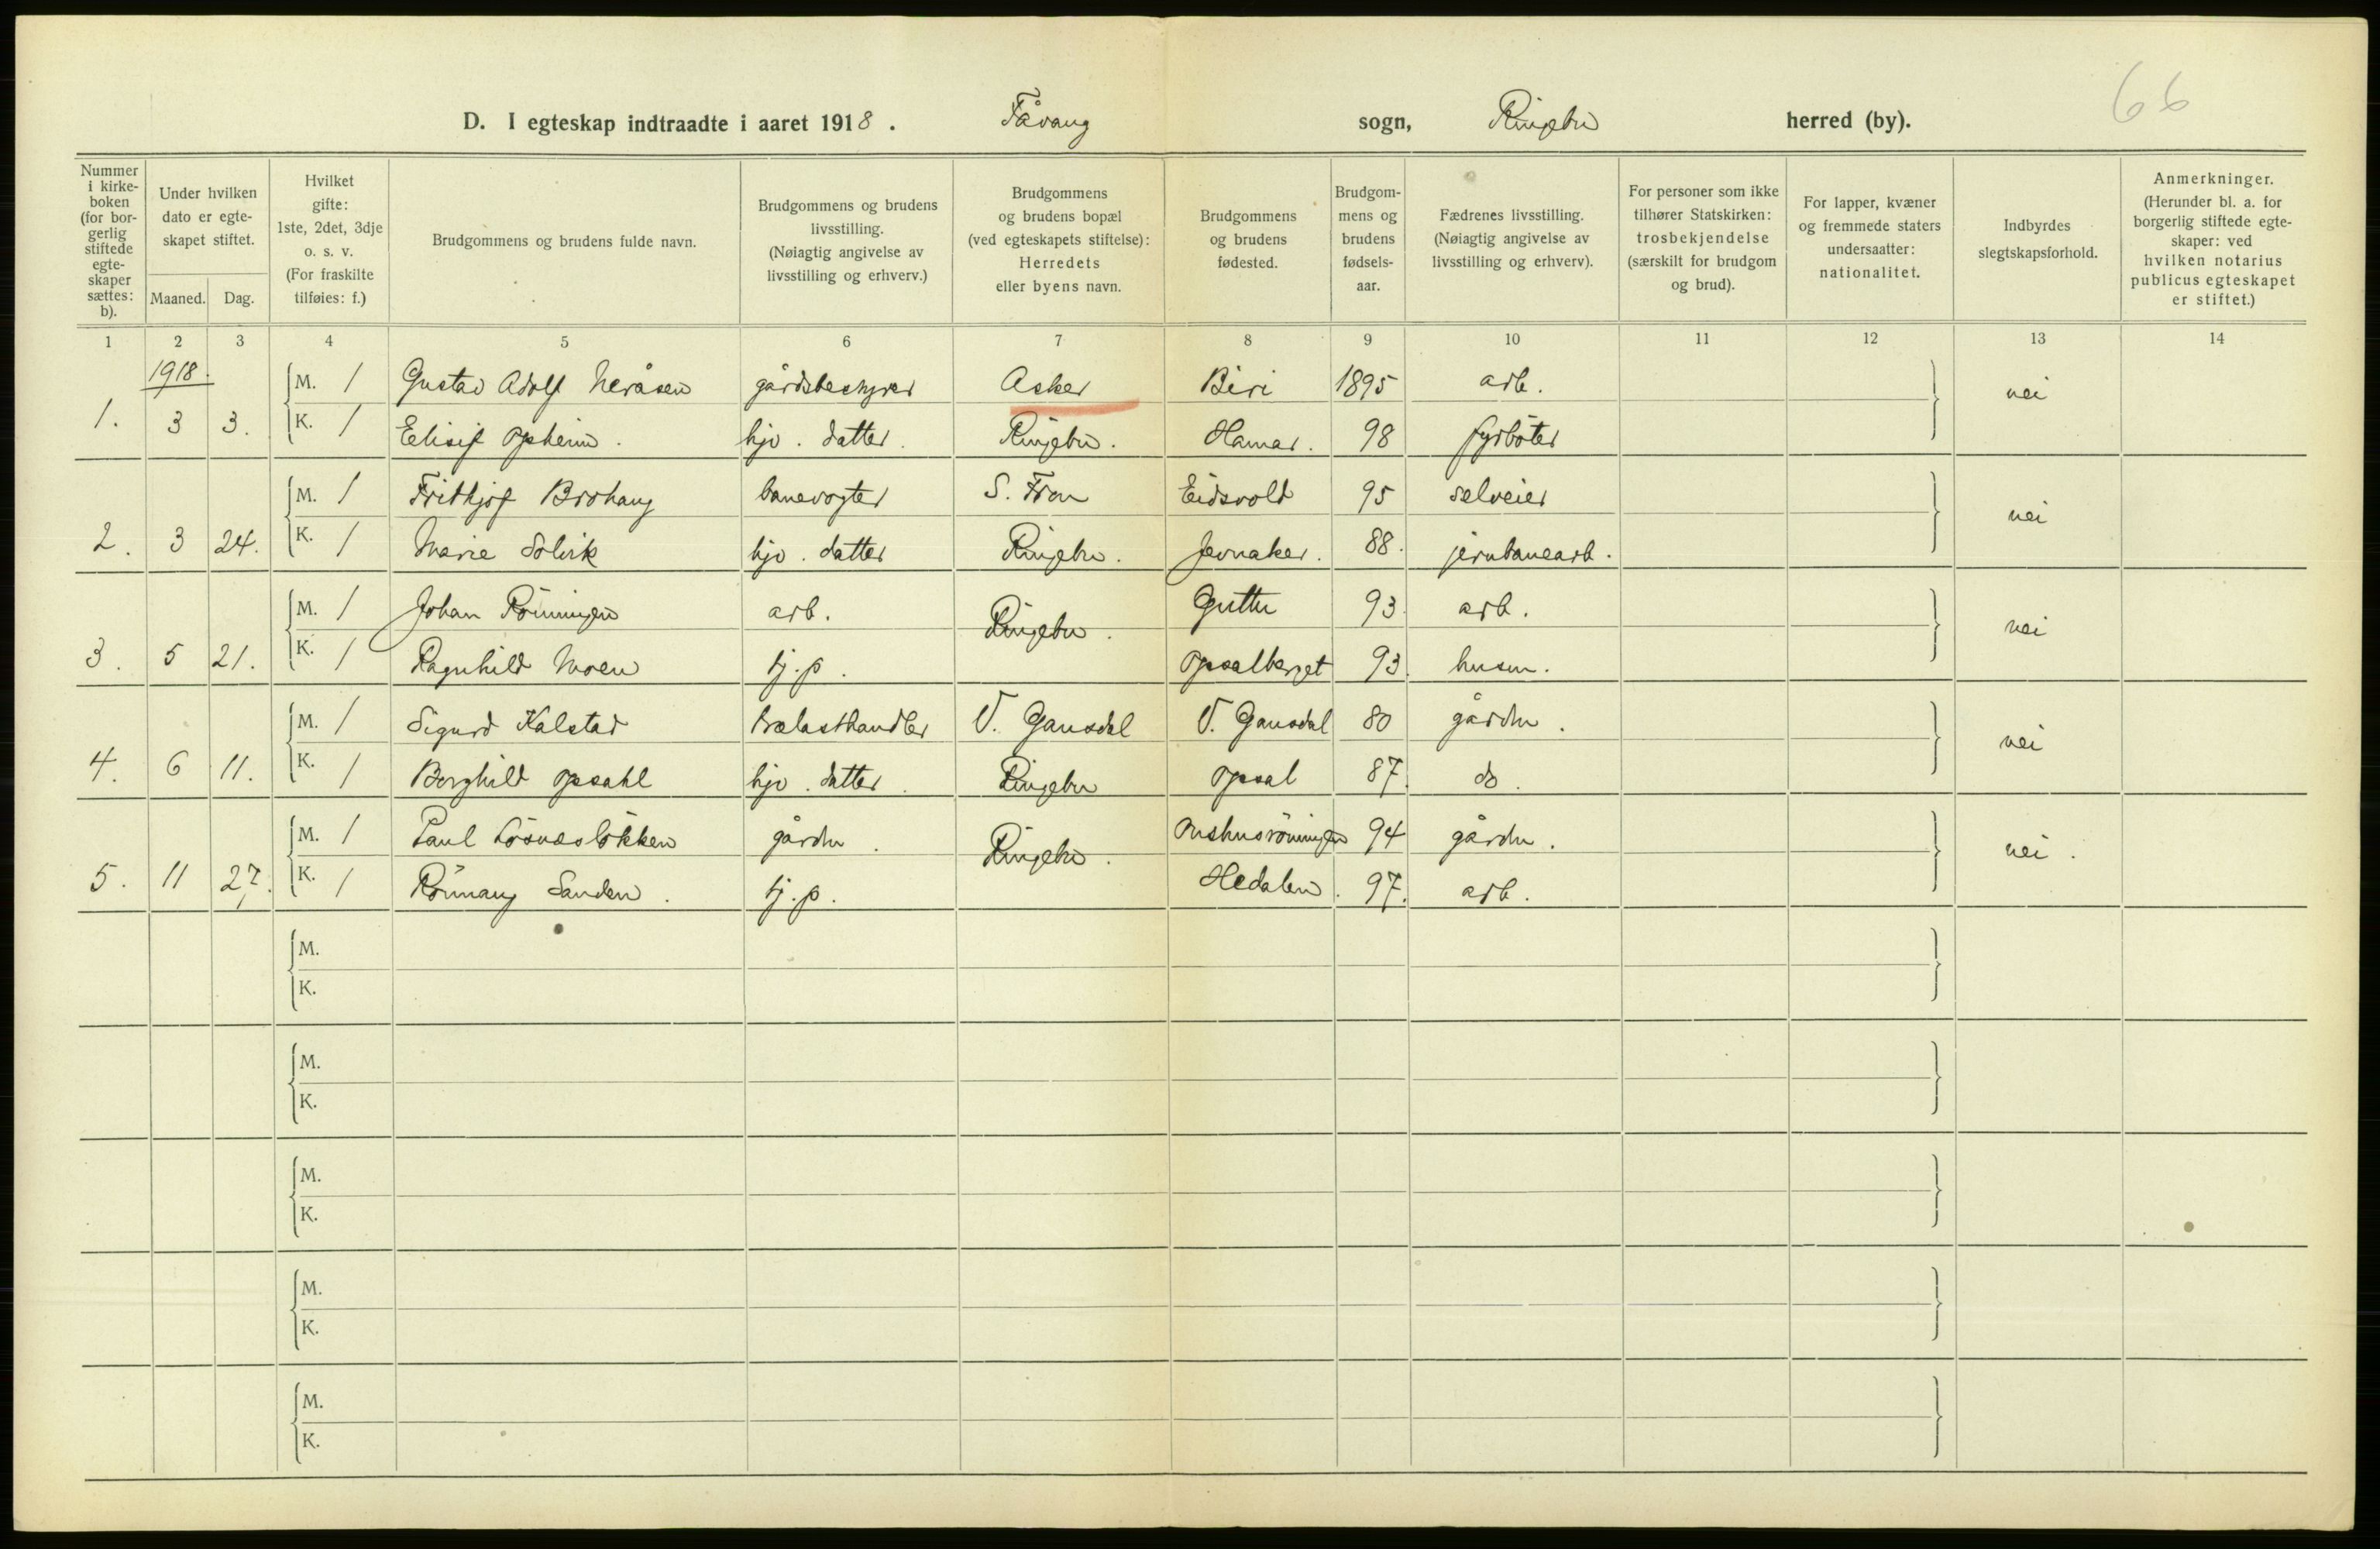 66
D. I egteskap indtraadte i aaret 1918. Fåvang sogn, Ringebu herred (by).
Nummer i kirke- boken (for bor- gerlig stiftede egte- skaper sættes: b).
Under hvilken dato er egte- skapet stiftet.
Maaned. Dag.
Hvilket gifte: 1ste, 2det, 3dje o. s. v. (For fraskilte tilføies: f.)
Brudgommens og brudens fulde navn.
Brudgommens og brudens livsstilling. (Nøiagtig angivelse av livsstilling og erhverv.)
Brudgommens og brudens bopæl (ved egteskapets stiftelse): Herredets eller byens navn.
Brudgommens og brudens fødested.
Brudgom- mens og brudens fødsels- aar.
Fædrenes livsstilling. (Nøiagtig angivelse av livsstilling og erhverv).
For personer som ikke tilhører Statskirken: trosbekjendelse (særskilt for brudgom og brud).
For lapper, kvæner og fremmede staters undersaatter: nationalitet.
Indbyrdes slegtskapsforhold.
Anmerkninger. (Herunder bl. a. for borgerlig stiftede egte- skaper: ved hvilken notarius publicus egteskapet er stiftet.)
1 2 3 4 5 6 7 8 9 10 11 12 13 14
1918.
M. 1 Gustav Adolf Neråsen gårdsbestyrer Asker Biri 1895 arb. nei
1. 3 3. K. 1 Elisif Opheim. hjv. datter. Ringebu. Hamar. 98 fyrbøter
M. 1 Frithjof Brohaug banevogter S. Fron Eidsvold 95 selveier nei
2. 3 24. K. 1 Marie Solvik hjv. datter Ringebu. Jevnaker. 88. jernbanearb.
M. 1 Johan Rönningen arb. Ringebu. Guttu 93 arb. nei
3. 5 21. K. 1 Ragnhild Moen tj.p. Opsalberget 93. husm.
M. 1 Sigurd Kalstad trælasthandler V. Gausdal V. Gausdal 80 gårdbr. nei
4. 6 11. K. 1 Borghild Opsahl hjv. datter. Ringebu Opsal 87. do.
M. 1 Paul Lösneslökken gårdbr. Ringebu. 94 gårdbr. nei.
5. 11 27. K. 1 Rönnaug Sanden. tj.p. Hedalen. 97. arb.
M.
K.
M.
K.
M.
K.
M.
K.
M.
K.